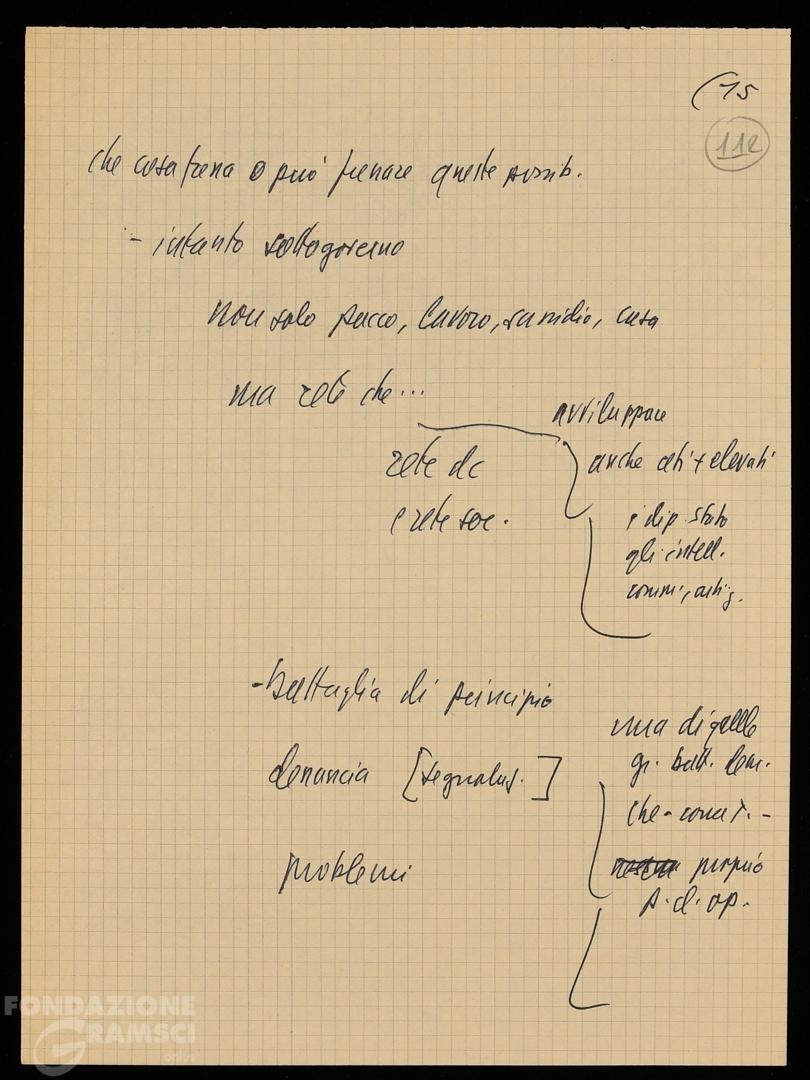 (15
112
che cosa frena o può frenare queste possib.
- intanto sottogoverno
non solo pacco, lavoro, sussidio, casa
ma rete che...
avviluppare
rete dc
anche ceti + elevati
e rete soc.
i dip. stato
gli intell.
comm., artig.
- battaglia di principio
una di quelle
gr. batt. dem.
denuncia [segnalaz.]
che -
problemi
proprio
p. d. op.
FONDAZIONE
GRAMSCI